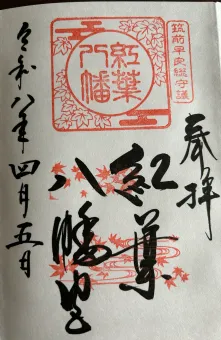 奉拝
筑前平安総守護
紅葉八幡
紅葉
八幡宮
令和八年四月五日